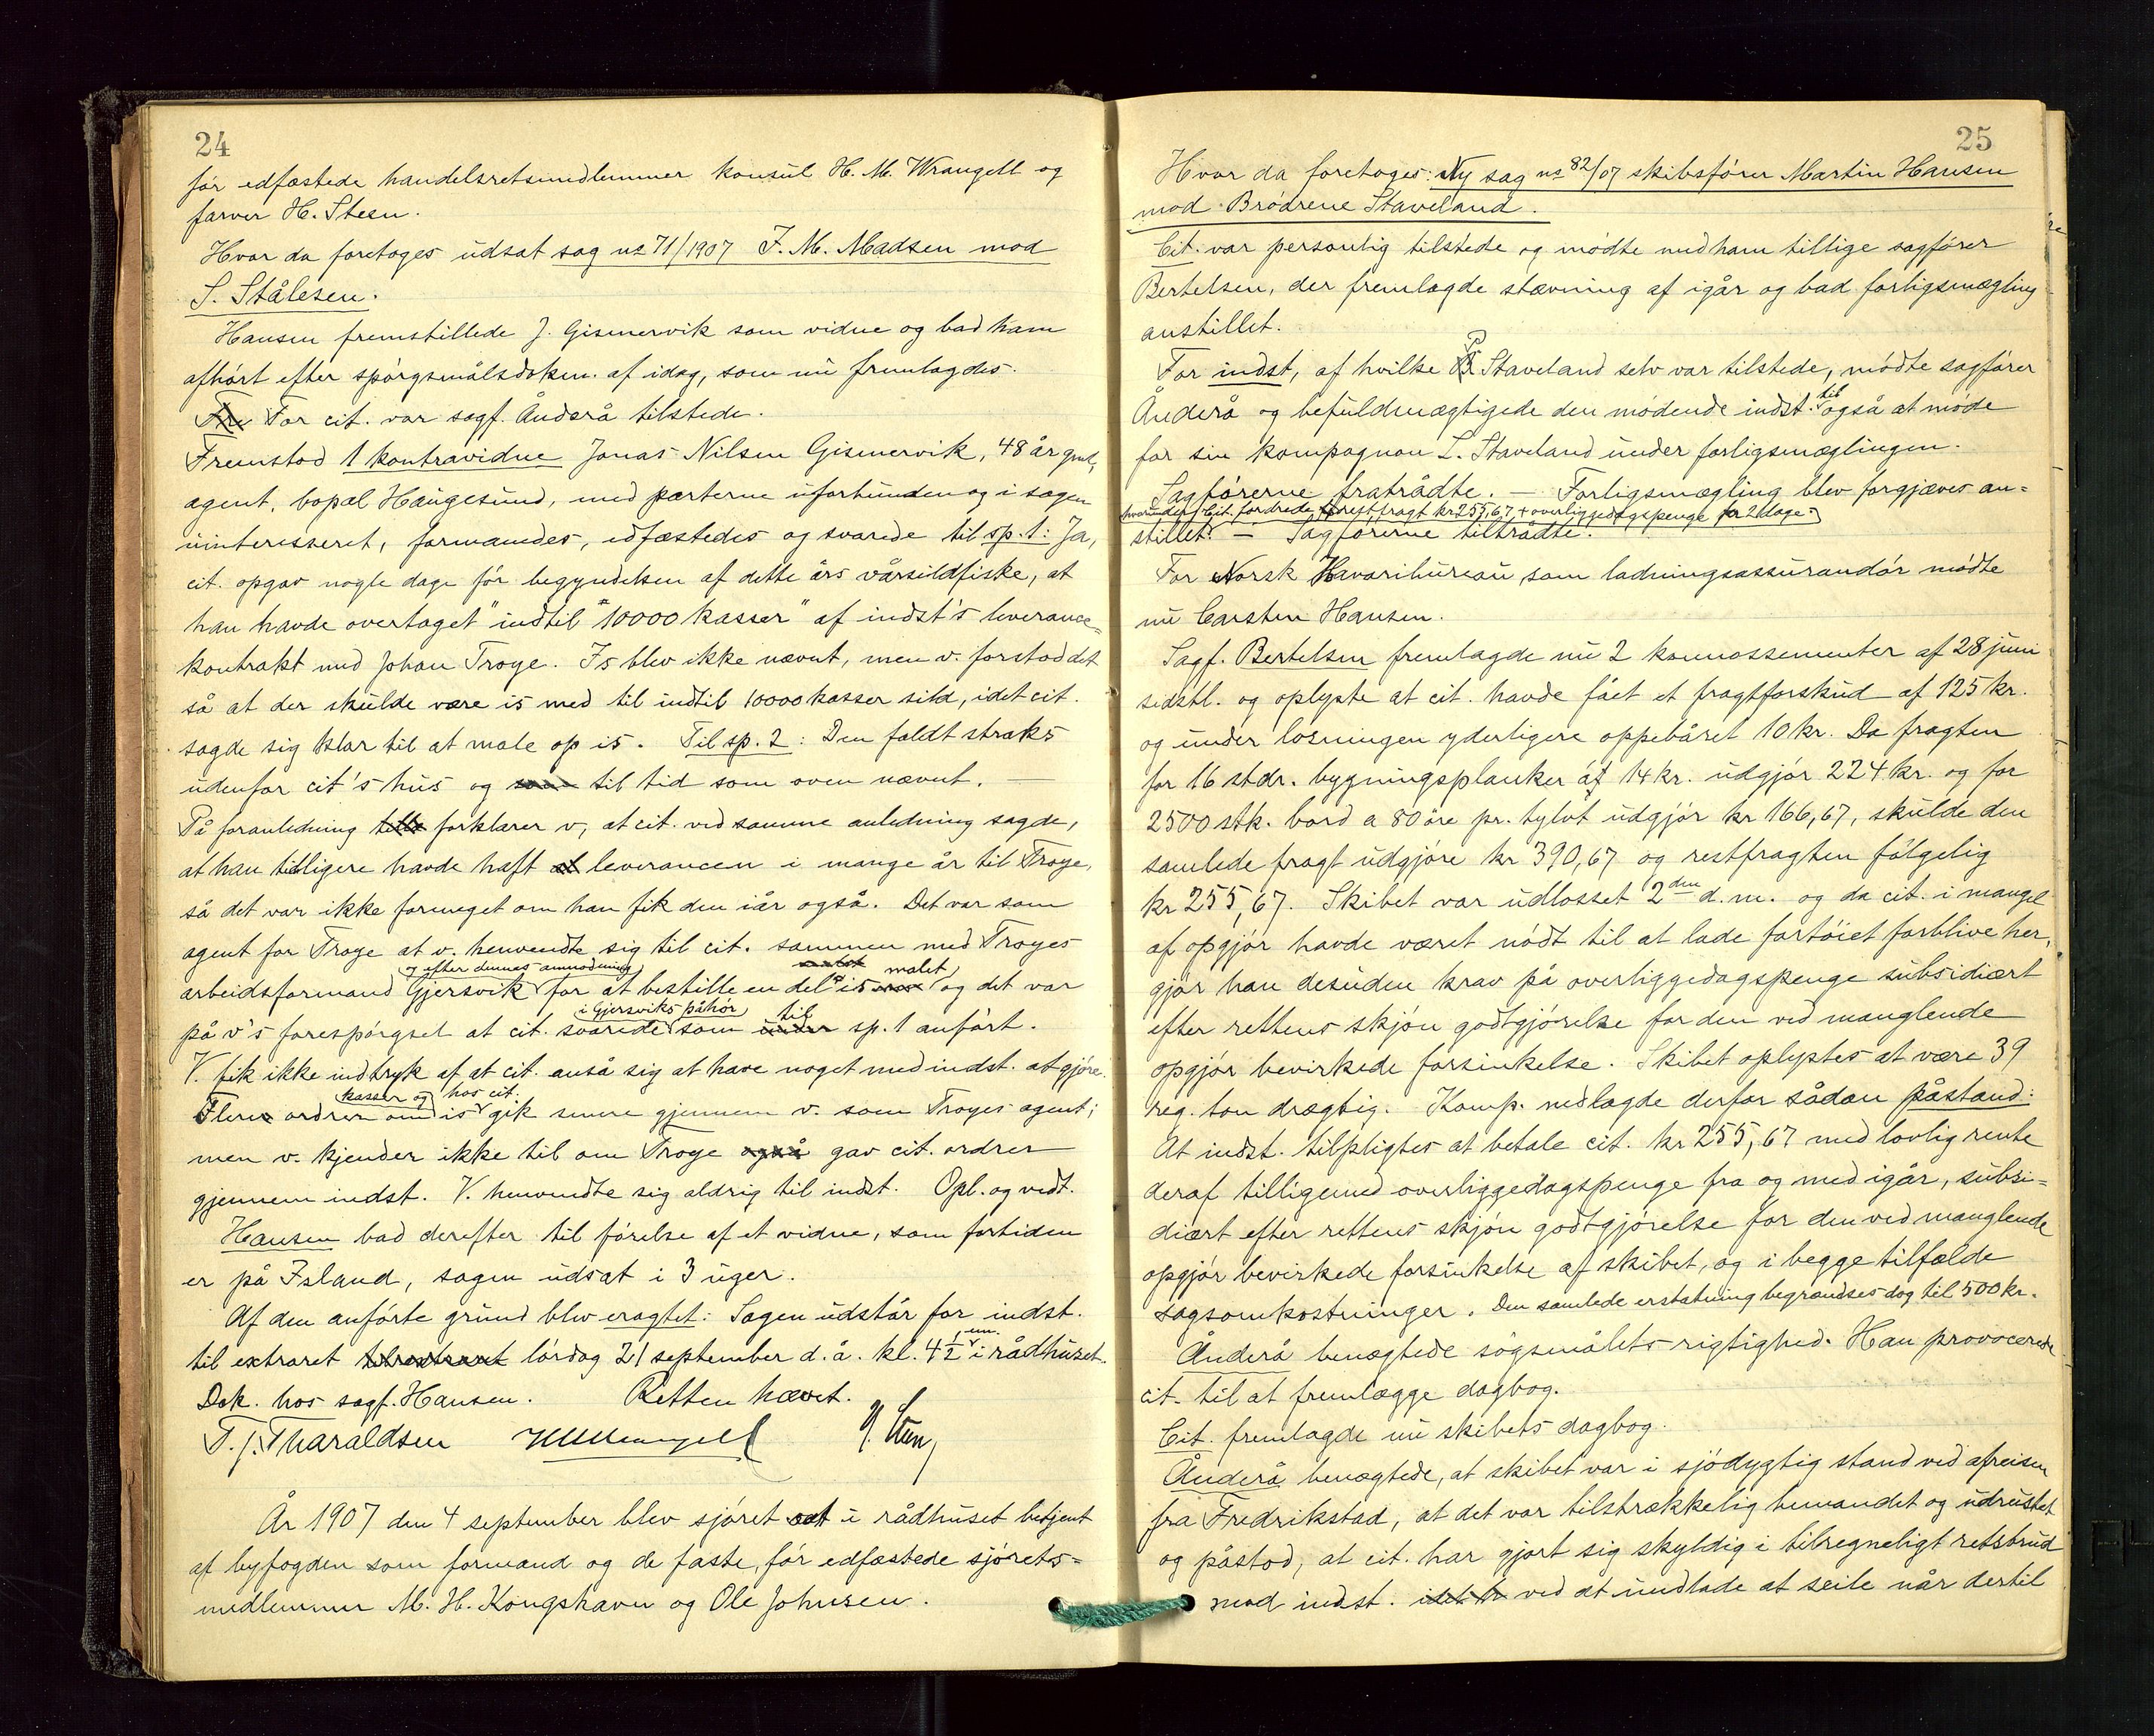 24
før edfæstede handelsretsmedlemmer konsul H. M. Wrangell og
farver H. Steen.
Hvor da foretoges udsat sag no 71/1907 J. M. Madsen mod
S. Stålesen.
Hansen fremstillede J. Gismervik som vidne og bad ham
afhørt efter spørgsmålsdokum. af idag, som nu fremlagdes.
For cit. var sagf. Anderå tilstede.
Fremstod 1 kontravidne Jonas Nilsen Gismervik, 48 år gml,
agent, bopæl Haugesund, med parterne uforbunden og i sagen
uinteresseret, formanedes, edfæstedes og svarede til sp. 1: Ja,
cit. opgav nogle dage før begyndelsen af dette års vårsildfiske, at
han havde overtaget "indtil "10000 kasser" af indst's leverance=
kontrakt med Johan Troye. Is blev ikke nævnt, men v. forstod det
så at der skulde være is med til indtil 10000 kasser sild, idet cit.
sagde sig klar til at male op is. Til sp. 2: Den faldt straks
udenfor cit's hus og til tid som oven nævnt. —
På foranledning forklarer v, at cit. ved samme anledning sagde,
at han tidligere havde haft leverancen i mange år til Troye,
så det var ikke formeget om han fik den iår også. Det var som
agent for Troye at v. henvendte sig til cit. sammen med Troyes
og efter dennes anmodning malet
arbeidsformand Gjersvik for at bestille en del is og det var
i Gjersviks påhør til
på v's forespørgsel at cit. svarede som sp. 1 anført.
V. fik ikke indtryk af at cit. anså sig at have noget med indst. at gjøre.
kasser og hos cit.
Flere ordrer om is gik senere gjennem v. som Troyes agent;
men v. kjender ikke til om Troye også gav cit. ordrer
gjennem indst. V. henvendte sig aldrig til indst. Opl. og vedt.
Hansen bad derefter til førelse af et vidne, som fortiden
er på Island, sagen udsat i 3 uger.
Af den anførte grund blev eragtet: Sagen udstår for indst.
em.
til extraret lørdag 21 september d. å. kl. 4 1/2 i rådhuset.
Dok. hos sagf. Hansen. Retten hævet.
T. J. Tharaldsen HMWrangell H. Steen
År 1907 den 4 september blev sjøret sat i rådhuset betjent
af byfogden som formand og de faste, før edfæstede sjørets=
medlemmer M. H. Kongshavn og Ole Johnsen.
25
Hvor da foretoges: Ny sag no 82/07 skibsfører Martin Hansen
mod Brødrene Staveland.
Cit. var personlig tilstede og mødte med ham tillige sagfører
Bertelsen, der fremlagde stævning af igår og bad forligsmægling
anstillet.
P
For indst, af hvilke Staveland selv var tilstede, mødte sagfører
til
Anderå og befuldmægtigede den mødende indst. også at møde
for sin kompagnon L. Staveland under forligsmæglingen.
Sagførerne fratrådte. — Forligsmægling blev forgjæves an=
hvorunder Cit. fordrede restfragt kr 255,67 + overliggedagspenge for 2 dage
stillet. — Sagførerne tiltrådte.
For Norsk Havaribureau som ladningsassurandør mødte
nu Carsten Hansen.
Sagf. Bertelsen fremlagde nu 2 konnossementer af 28 juni
sidstl. og oplyste at cit. havde fået et fragtforskud af 125 kr.
og under losningen yderligere oppebåret 10 kr. Da fragten
for 16 stdr. bygningsplanker á 14 kr. udgjør 224 kr. og for
2500 stk. bord a 80 øre pr. tylvt udgjør kr 166,67, skulde den
samlede fragt udgjøre kr 390,67 og restfragten følgelig
kr 255,67. Skibet var udlosset 2den d. m. og da cit. i mangel
af opgjør havde været nødt til at lade fartøiet forblive her,
gjør han desuden krav på overliggedagspenge subsidiært
efter rettens skjøn godtgjørelse for den ved manglende
opgjør bevirkede forsinkelse. Skibet oplystes at være 39
reg. ton drægtig. Komp. nedlagde derfor sådan påstand:
At indst. tilpligtes at betale cit. kr 255,67 med lovlig rente
deraf tilligemed overliggedagspenge fra og med igår, subsi=
diært efter rettens skjøn godtgjørelse for den ved manglende
opgjør bevirkede forsinkelse af skibet, og i begge tilfælde
sagsomkostninger. Den samlede erstatning begrændses dog til 500 kr.
Anderå benægtede søgsmålets rigtighed. Han provocerede
cit. til at fremlægge dagbog.
Cit. fremlagde nu skibets dagbog.
Anderå benægtede, at skibet var i sjødygtig stand ved afreisen
fra Fredrikstad, at det var tilstrækkelig bemandet og udrustet
og påstod, at cit. har gjort sig skyldig i tilregneligt retsbrud
mod indst. ved at undlade at seile når dertil